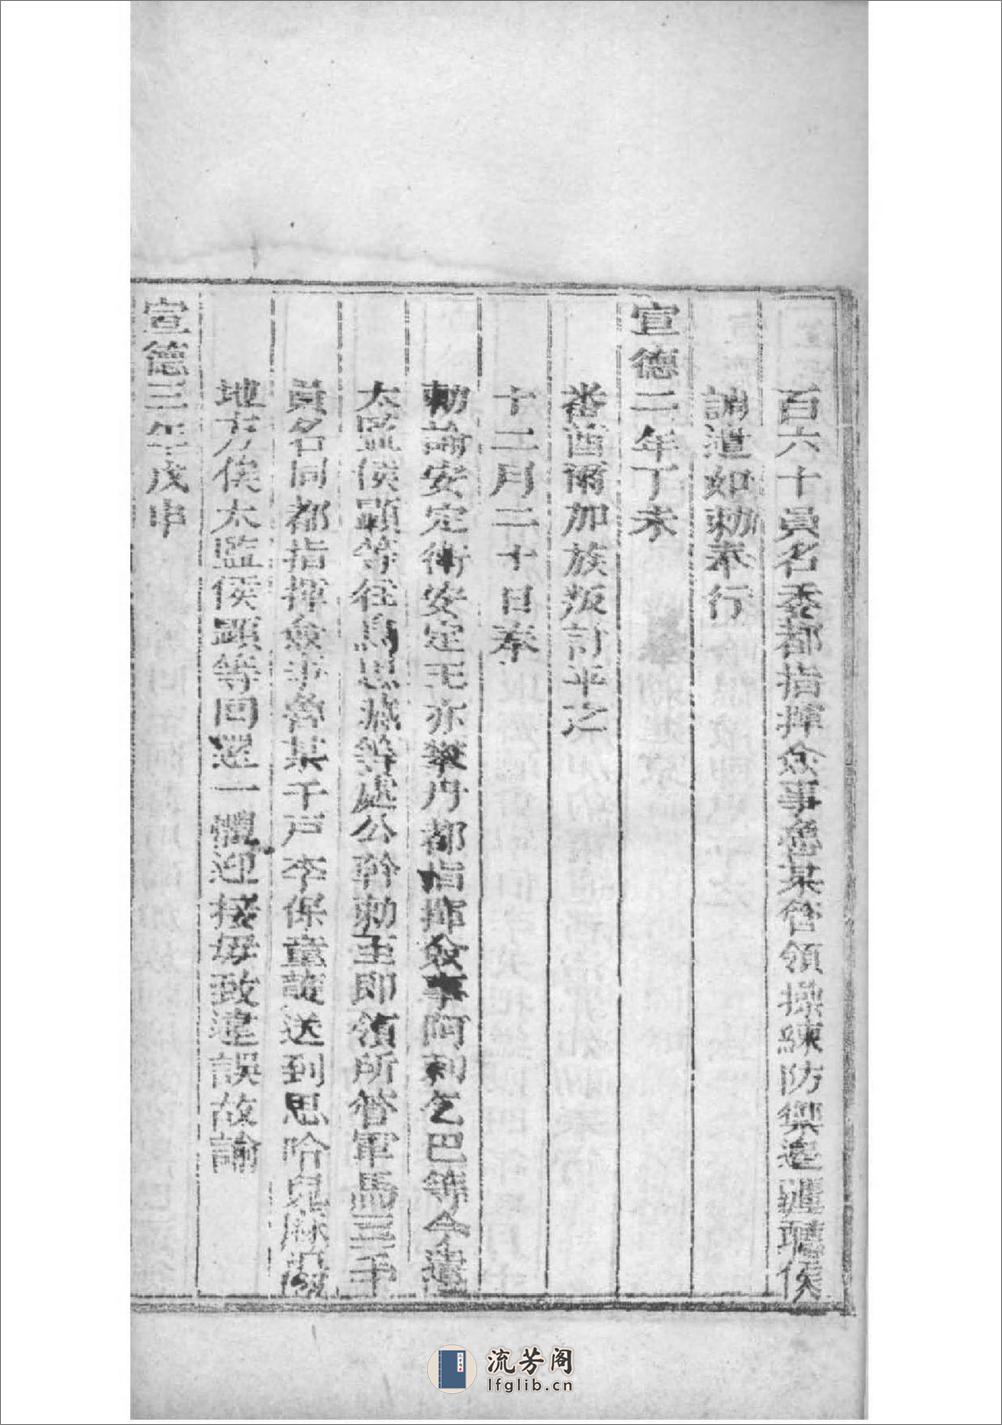 百六十員名委都指揮僉事魯某管領操練防禦邊疆聽候
調遣如勅奉行
宣德二年丁未
番酋爾加族叛討平之
十二月二十日奉
勅諭安定衛安定王亦攀丹都指揮僉事阿剌乞巴等今遣
太監侯顯等往烏思藏等處公幹勅至即領所管軍馬三千
員名同都指揮僉事魯某千戶李保童護送到思哈兒麻
地方候太監侯顯等回還一體迎接毋致違誤故諭
宣德三年戊申
流芳阁
lfglib.cn